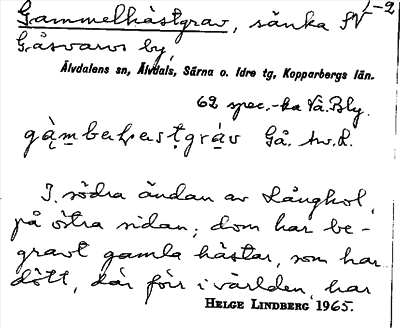 1-2
Gammelhästgrav, sänka SV
Gåsvarvs by,
Älvdalens sn, Älvdals, Särna o. Idre tg, Kopparbergs län.
62 spec.-ka Vä. Bly.
gambehestgrav Gå. Aw. L.
I södra ändan av Långhol,
på östra sidan; dom har be-
gravt gamla hästar, som har
dött, där förr i världen, har
HELGE LINDBERG 1965.